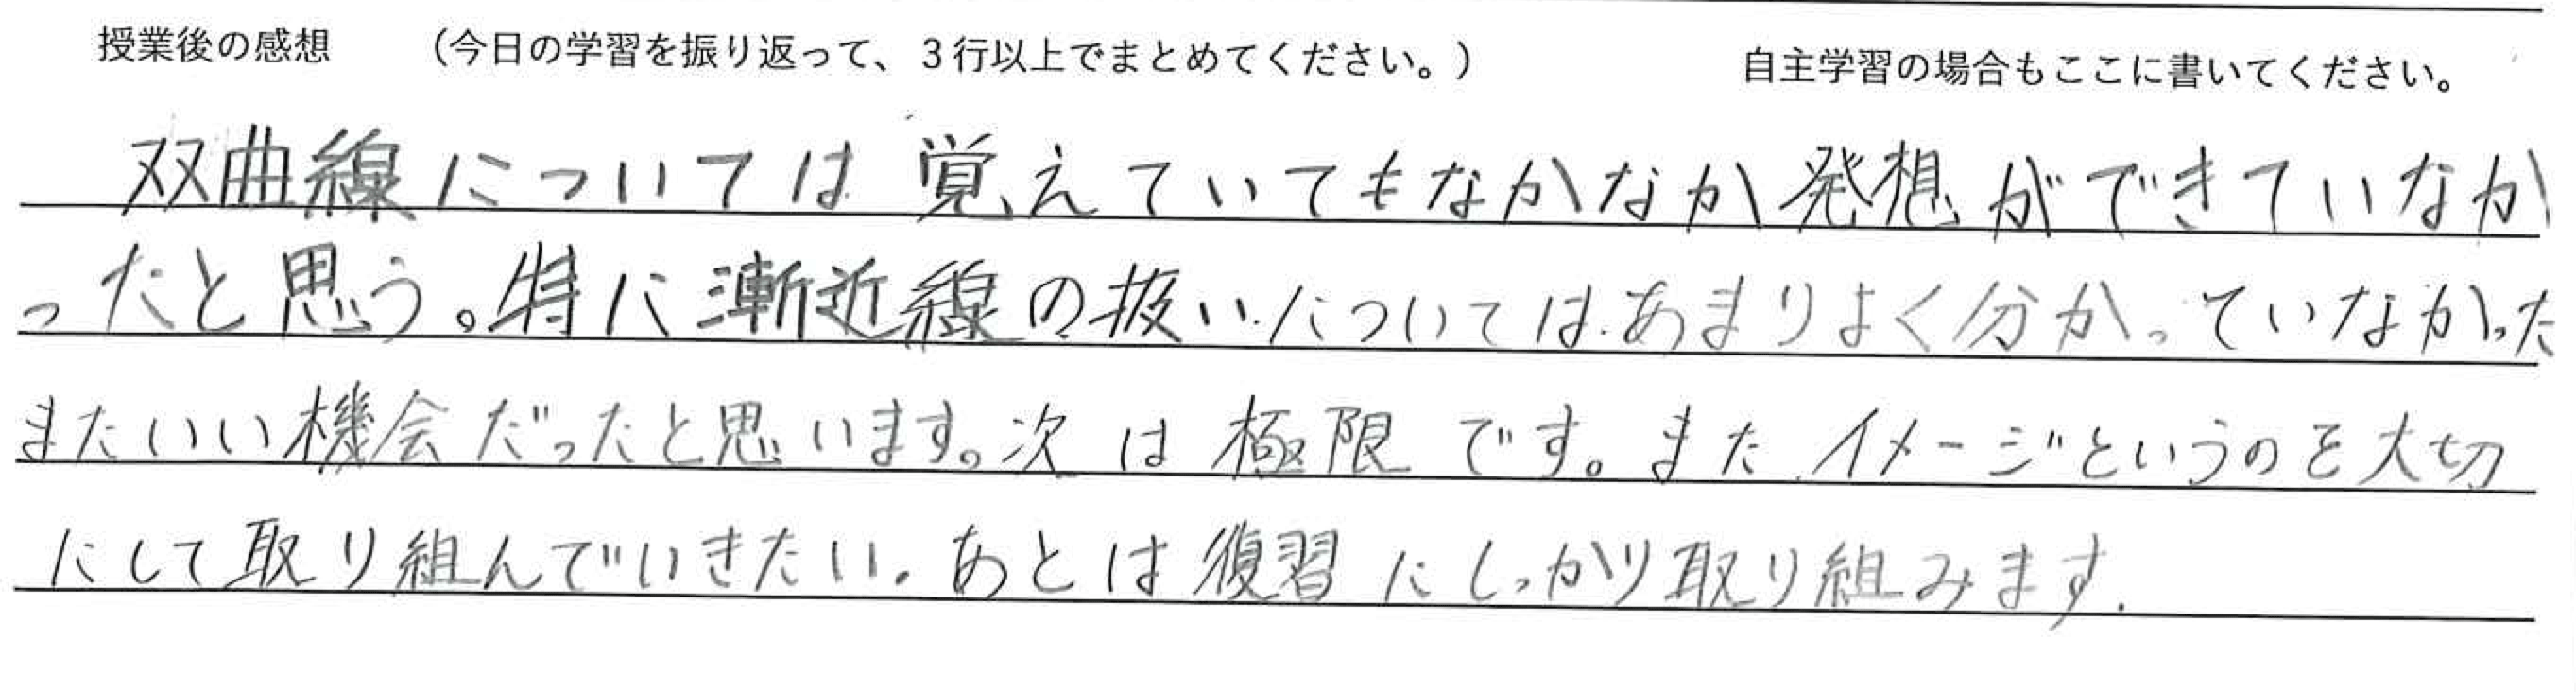 授業後の感想 （今日の学習を振り返って、３行以上でまとめてください。） 自主学習の場合もここに書いてください。
双曲線については覚えていてもなかなか発想ができていなか
ったと思う。特に漸近線の扱いについてはあまりよく分かっていなかった
またいい機会だったと思います。次は極限です。またイメージというのを大切
にして取り組んでいきたい。あとは復習にしっかり取り組みます.